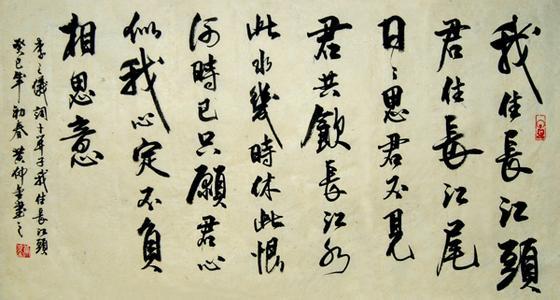 我住長江頭
君住長江尾
日々思君不見
君共飲長江水
此水幾時休此恨
何時已只願君心
似我心定不負
相思意
李之儀詞卜算子我住長江頭
癸巳年初春黄仲書之